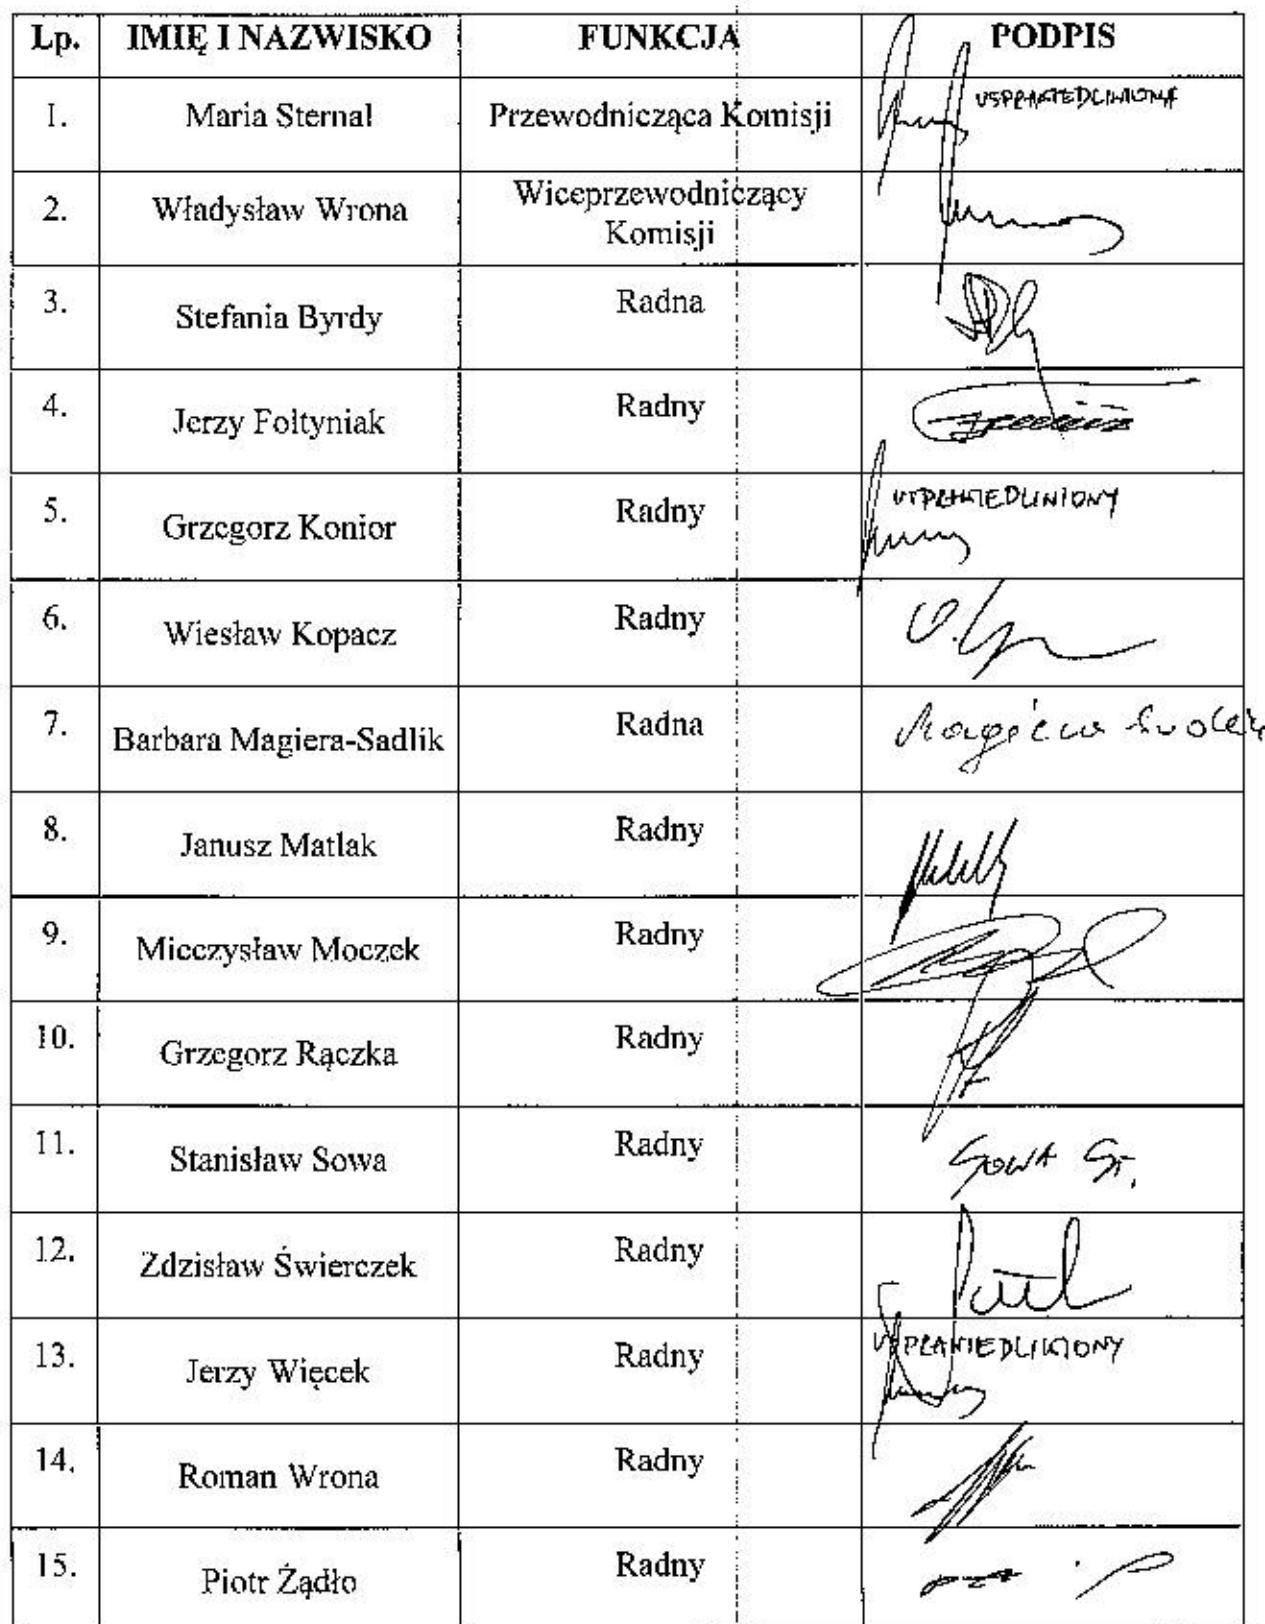 Lp. IMIĘ I NAZWISKO FUNKCJA PODPIS
1. Maria Sternal Przewodnicząca Komisji USPRAWIEDLIWIONA
2. Władysław Wrona Wiceprzewodniczący
Komisji
3. Stefania Byrdy Radna
4. Jerzy Fołtyniak Radny
5. Grzegorz Konior Radny USPRAWIEDLIWIONY
6. Wiesław Kopacz Radny
7. Barbara Magiera-Sadlik Radna
8. Janusz Matlak Radny
9. Mieczysław Moczek Radny
10. Grzegorz Rączka Radny
11. Stanisław Sowa Radny SOWA ST.
12. Zdzisław Świerczek Radny
13. Jerzy Więcek Radny USPRAWIEDLIWIONY
14. Roman Wrona Radny
15. Piotr Żądło Radny